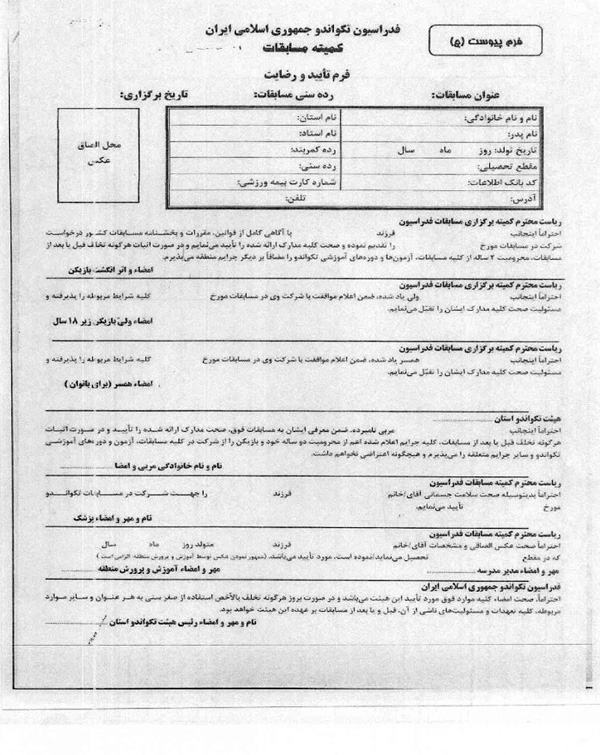 فرم پیوست (ج)
فدراسیون تکواندو جمهوری اسلامی ایران
کمیته مسابقات
فرم تأیید و رضایت
عنوان مسابقات: رده سنی مسابقات: تاریخ برگزاری:
نام و نام خانوادگی: نام استان:
نام پدر: نام استاد:
تاریخ تولد: روز ماه سال رده کمربند:
مقطع تحصیلی: رده سنی:
کد بانک اطلاعات: شماره کارت بیمه ورزشی:
آدرس: تلفن:
محل الصاق
عکس
ریاست محترم کمیته برگزاری مسابقات فدراسیون
احتراماً اینجانب فرزند با آگاهی کامل از قوانین، مقررات و بخشنامه مسابقات کشور درخواست
شرکت در مسابقات مورخ را تقدیم نموده و صحت کلیه مدارک ارائه شده را تأیید می‌نمایم و در صورت اثبات هرگونه تخلف قبل یا بعد از
مسابقات، محرومیت ۲ ساله از کلیه مسابقات، آزمون‌ها و دوره‌های آموزشی تکواندو را مضافاً بر دیگر جرایم متعلقه می‌پذیرم.
امضاء و اثر انگشت بازیکن
ریاست محترم کمیته برگزاری مسابقات فدراسیون
احتراماً اینجانب ولی یاد شده، ضمن اعلام موافقت با شرکت وی در مسابقات مورخ کلیه شرایط مربوطه را پذیرفته و
مسئولیت صحت کلیه مدارک ایشان را تقبّل می‌نمایم.
امضاء ولیّ بازیکن زیر ۱۸ سال
ریاست محترم کمیته برگزاری مسابقات فدراسیون
احتراماً اینجانب همسر یاد شده، ضمن اعلام موافقت با شرکت وی در مسابقات مورخ کلیه شرایط مربوطه را پذیرفته و
مسئولیت صحت کلیه مدارک ایشان را تقبّل می‌نمایم.
امضاء همسر (برای بانوان)
هیئت تکواندو استان
احتراماً اینجانب مربی نامبرده، ضمن معرفی ایشان به مسابقات فوق، صحت مدارک ارائه شده را تأیید و در صورت اثبات
هرگونه تخلف قبل یا بعد از مسابقات، کلیه جرایم اعلام شده اعم از محرومیت دو ساله خود و بازیکن را از شرکت در کلیه مسابقات، آزمون و دوره‌های آموزشی
تکواندو و سایر جرایم متعلقه را می‌پذیرم و هیچگونه اعتراضی نخواهم داشت.
نام و نام خانوادگی مربی و امضا
ریاست محترم کمیته مسابقات فدراسیون
احتراماً بدینوسیله صحت سلامت جسمانی آقای/خانم فرزند را جهت شرکت در مسابقات تکواندو
مورخ تأیید می‌نمایم.
نام و مهر و امضاء پزشک
ریاست محترم کمیته مسابقات فدراسیون
احتراماً صحت عکس الصاقی و مشخصات آقای/خانم فرزند متولد روز ماه سال
که در مقطع تحصیل می‌نماید/نموده است، مورد تأیید می‌باشد. (ممهور نمودن عکس توسط آموزش و پرورش منطقه الزامی است)
مهر و امضاء مدیر مدرسه مهر و امضاء آموزش و پرورش منطقه
فدراسیون تکواندو جمهوری اسلامی ایران
احتراماً، صحت امضاء کلیه موارد فوق مورد تأیید این هیئت می‌باشد و در صورت بروز هرگونه تخلف بالأخص استفاده از صغر سنی به هر عنوان و سایر موارد
مربوطه، کلیه تعهدات و مسئولیت‌های ناشی از آن، قبل و یا بعد از مسابقات بر عهده این هیئت خواهد بود.
نام و مهر و امضاء رئیس هیئت تکواندو استان